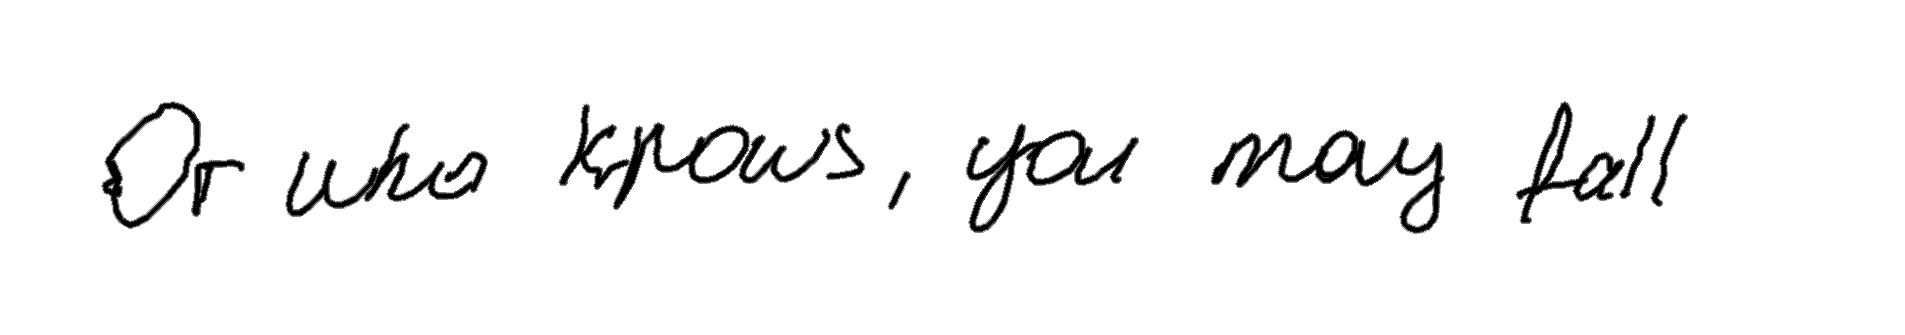 Or who knows, you may fall